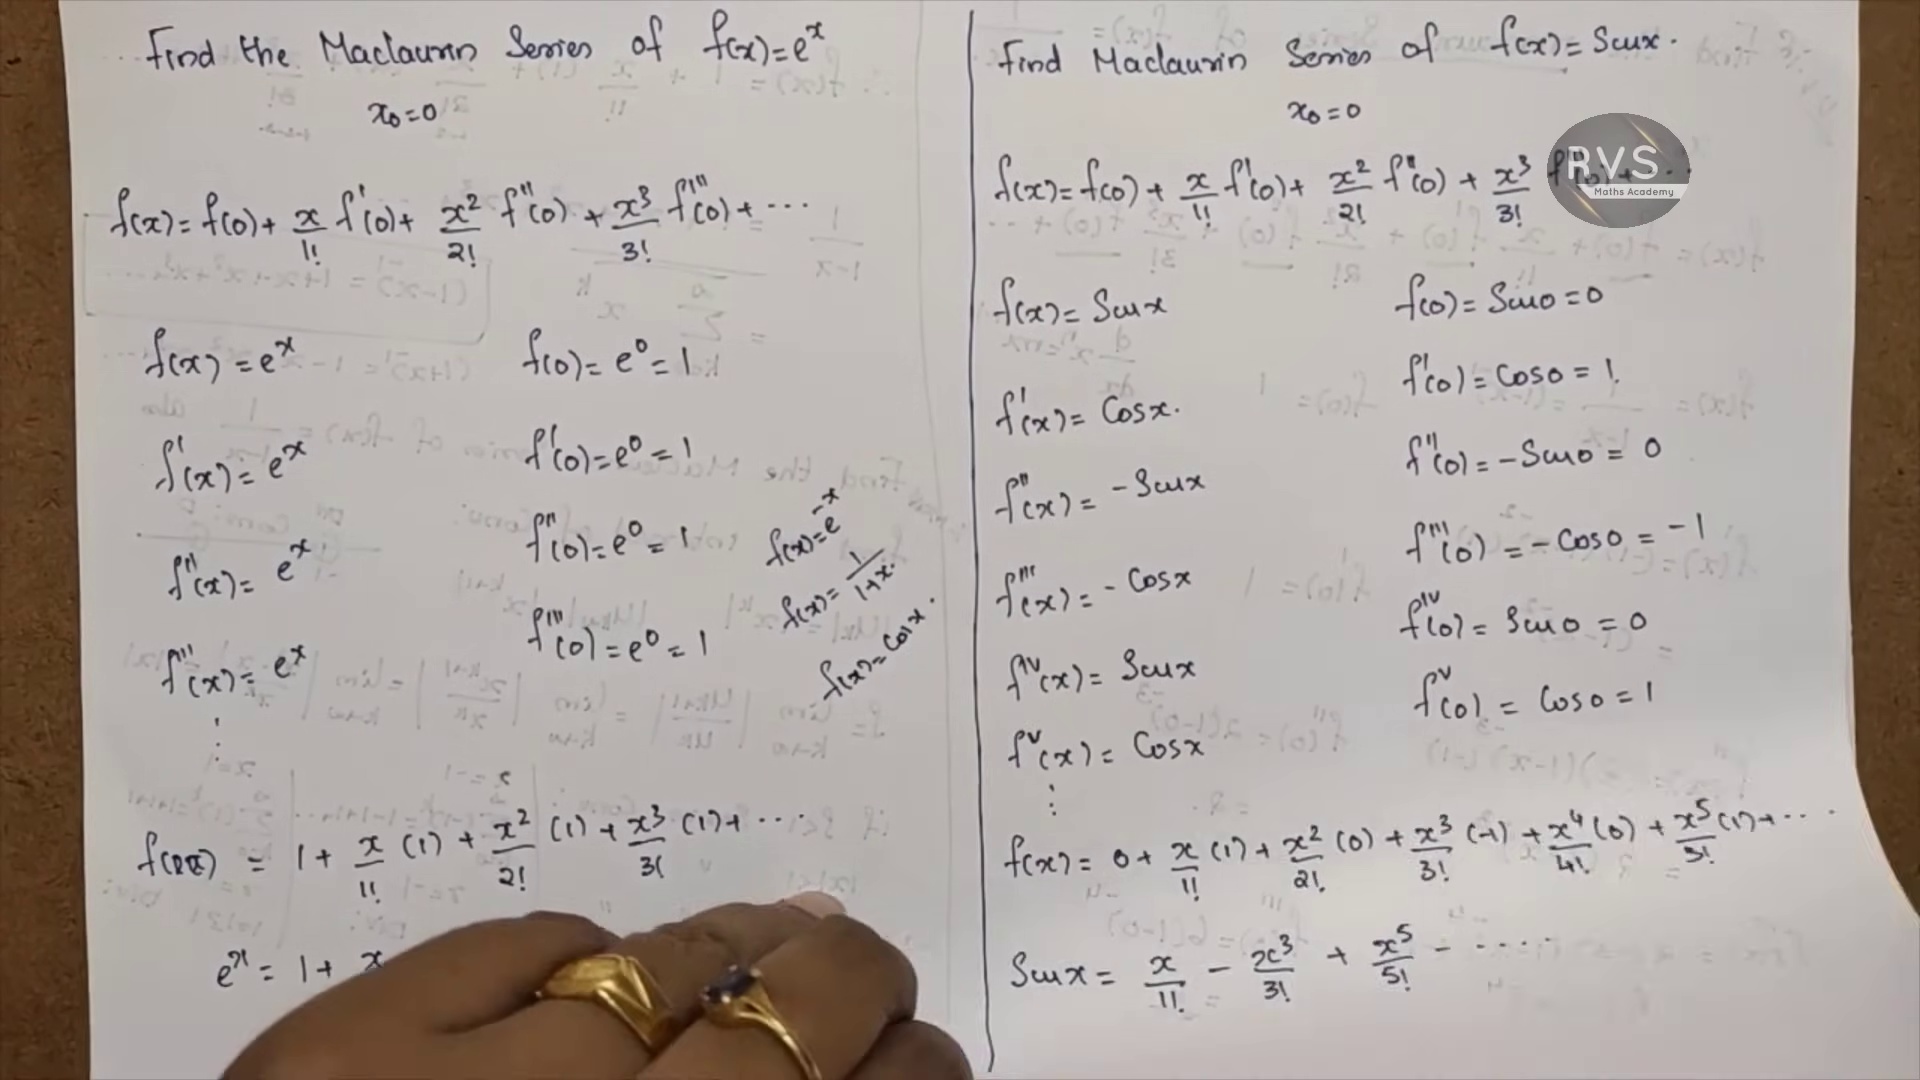 Find the Maclaurin Series of f(x)=e^x
x₀=0
f(x)= f(0)+ x/1! f'(0)+ x²/2! f''(0) + x³/3! f'''(0)+ ...
f(x) = e^x f(0)= e⁰ = 1
f'(x) = e^x f'(0)=e⁰ = 1
f''(x)= e^x f''(0)=e⁰ = 1
f'''(x)= e^x f'''(0)=e⁰ = 1
f(x)=e^-x
f(x)= 1/1+x.
f(x)=cosx.
= 1+ x/1! (1) + x²/2! (1)+ x³/3! (1)+ ...
e^x = 1+ x
Find Maclaurin Series of f(x)= Sinx.
x₀=0
f(x)= f(0) + x/1! f'(0)+ x²/2! f''(0) + x³/3! f'''(0)+ ...
RVS
Maths Academy
f(x)= Sinx f(0)= Sin0 =0
f'(x)= Cosx. f'(0)= Cos0 = 1.
f''(x)= -Sinx f''(0)= -Sin0 = 0
f'''(x)= - Cosx f'''(0) = - Cos0 = -1
f^IV(x)= Sinx f^IV(0)= Sin0 =0
f^V(x)= Cosx f^V(0) = Cos0 =1
f(x)= 0+ x/1! (1)+ x²/2! (0) + x³/3! (-1) + x⁴/4! (0) + x⁵/5! (1)+ ...
Sinx = x/1! - x³/3! + x⁵/5! - ....